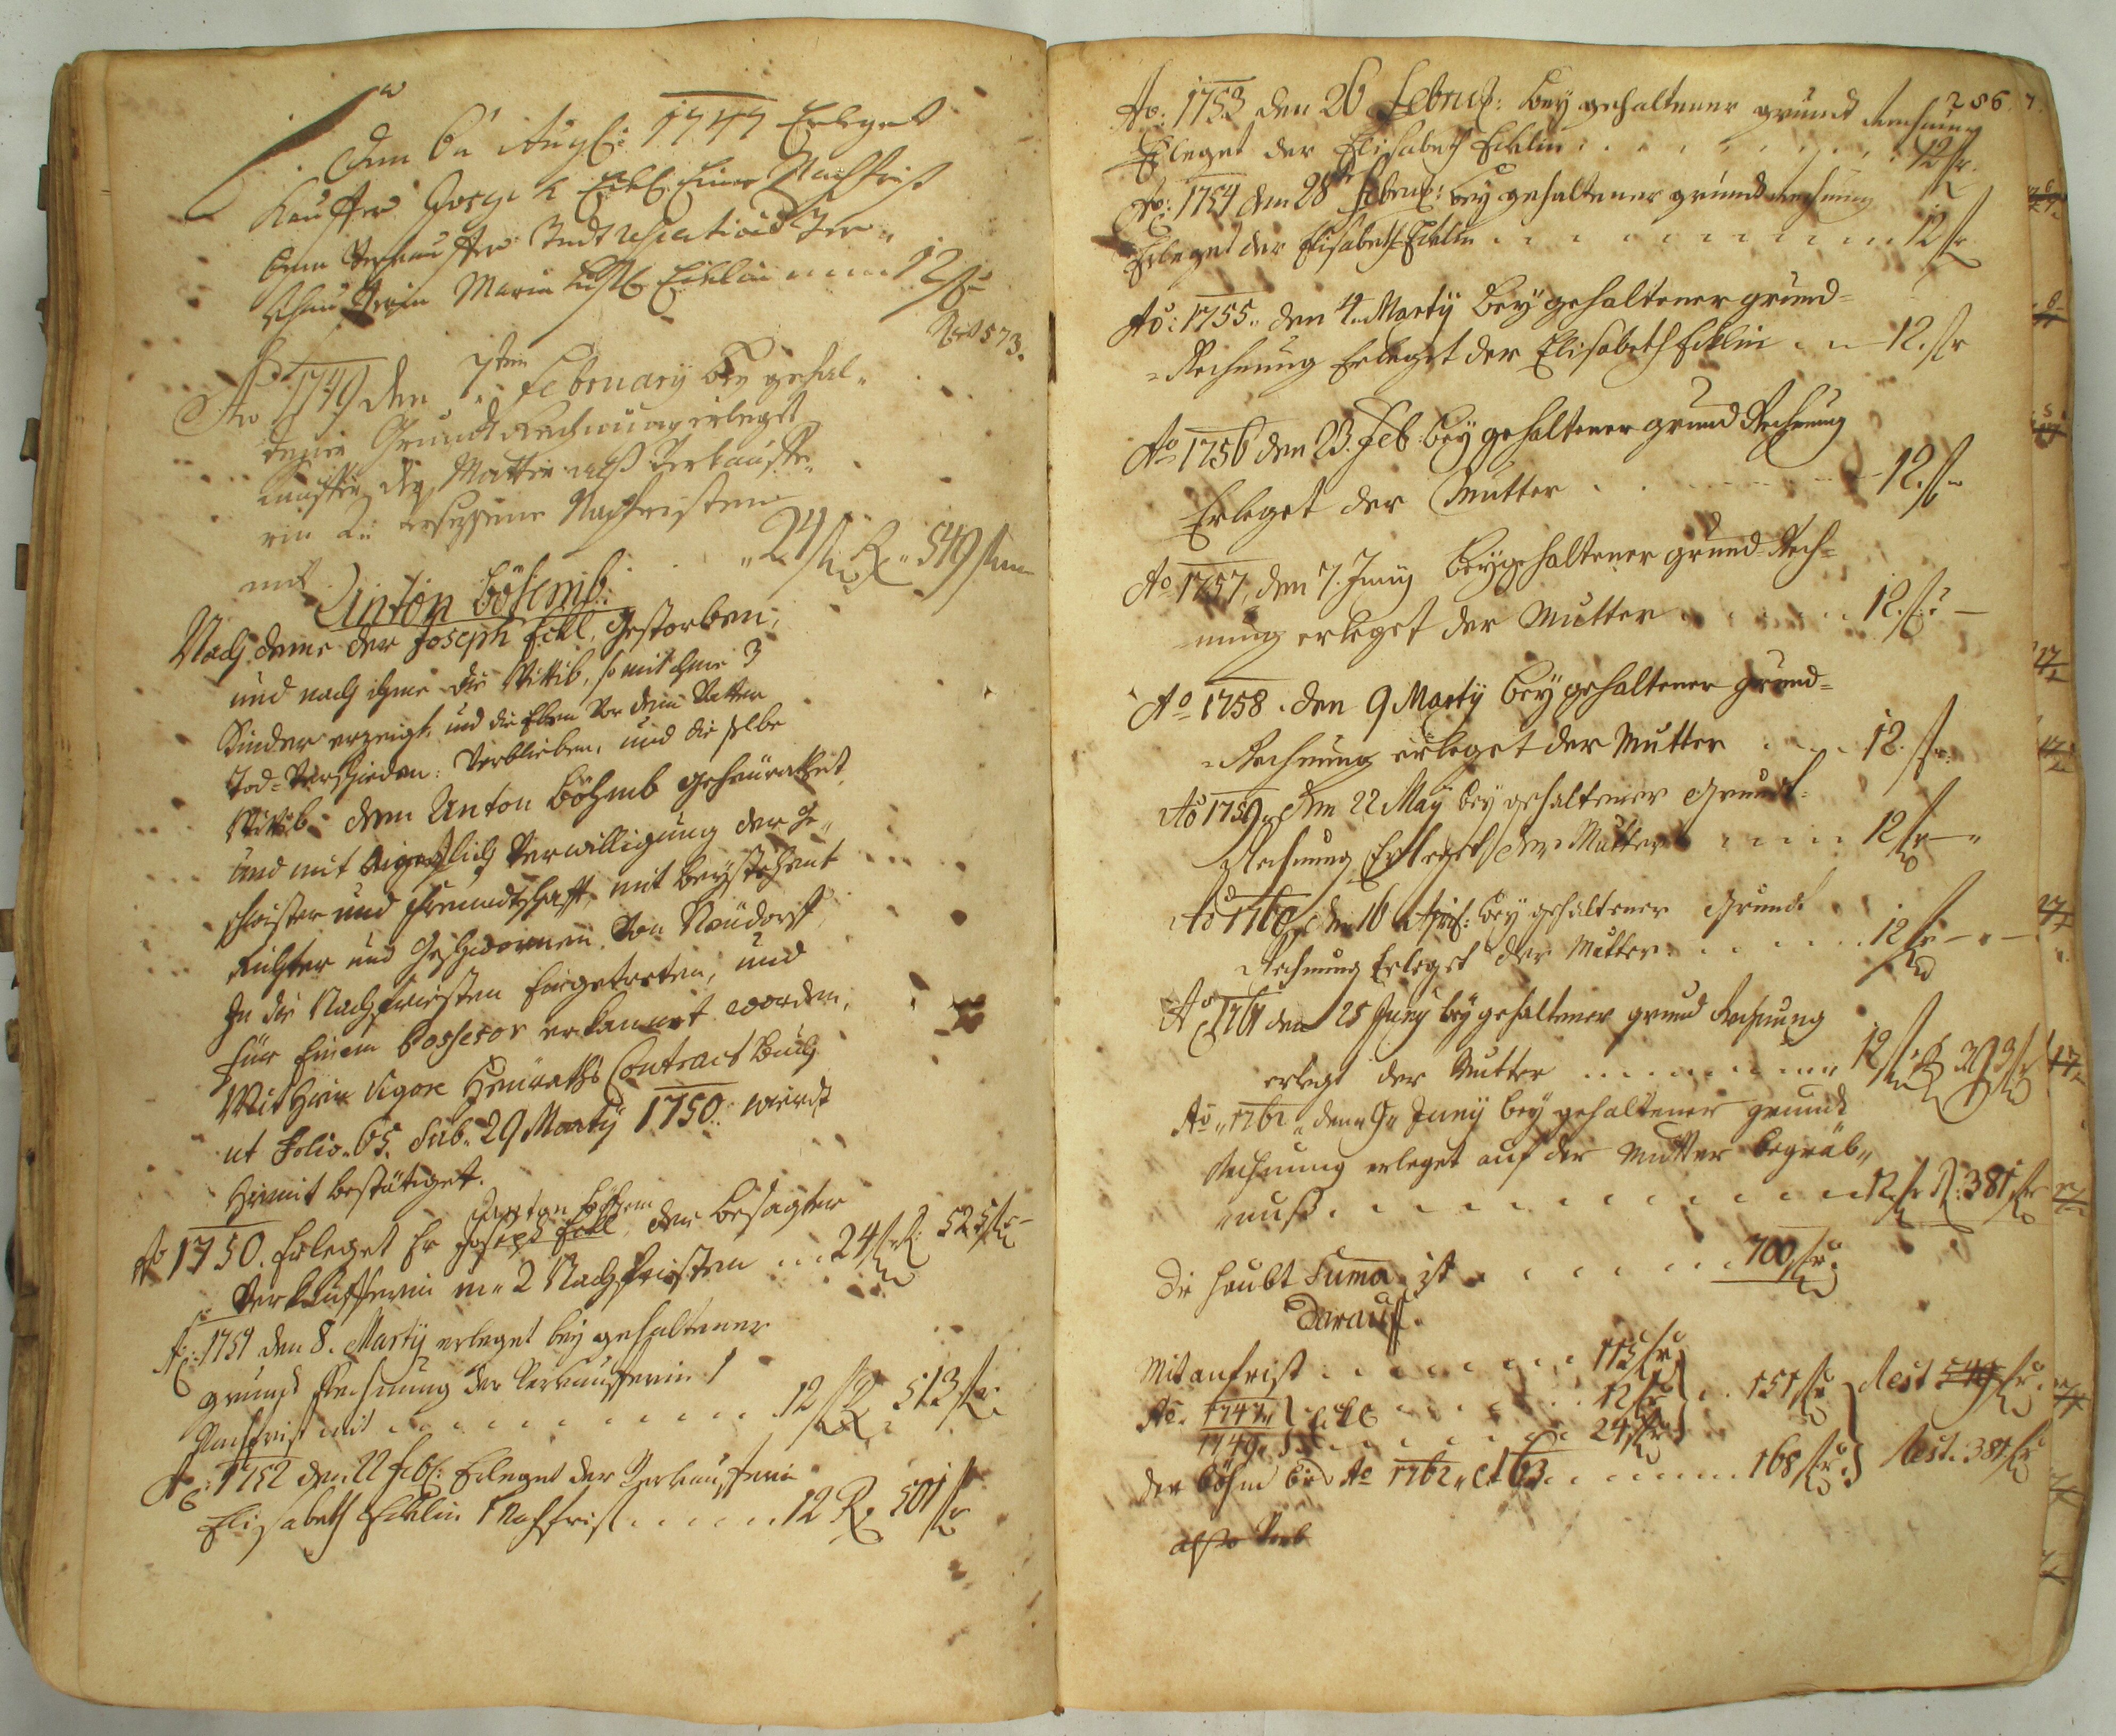 Den 6t Aug: 1747 Erleget
Kauffer Joseph Eckl Eine Nachfrist
dem Verkauffer undt respective Ver¬
Maria Eliß: Ecklin 12 fl:
Rest 573.
Ao 1749 den 7ten February bey gehal¬
tener Grundt Rechnung erlegt
Kauffer der Mutter alß Verkauffe¬
rin 2 Nachfristen
mit 24 fl R: 549 fl
Anton Böhmb:
Nach deme der Joseph Eckl, gestorben,
und nach ihme die Wittib, so mit ihme 3
Kinder erzeigt, und die Eben vor dem Vatter
Tod=Verschieden: Verblieben, und die selbe
Wittib dem Anton Böhmb geheürathet,
und mit Verwilligung der Ge¬
schwister und Freundtschafft, mit beystehent
Richter und Geschwornen von Neüdorff,
In die Nachfristen Eingetretten, und
für Einem Possesor erkannet worden,
Mit Hin Vigore Heüraths Contract buch
ut Folio 65. sub. 29 Marty 1750 wierdt
Hiemit bestätiget.
Anton Böhem
Ao 1750. Erleget Er Joseph Eckl, der besagten
Verkaufferin 2 Nachfristen 24 fl R: 525 fl
Ao: 1751 den 8. Marty erleget bey gehaltener
grund Rechnung der Verkaufferin 1
Nachfrist mit 12 fl R 513 fl
Ao: 1752 den 22 Feb: Erleget der Verkaufferin
Elisabeth Ecklin 1 Nachfrist 12 R: 501 fl
286
Ao: 1753 den 26 Febru: bey gehaltener grund Rechnung
Erleget der Elisabeth Ecklin 12 fl.
Ao: 1754 den 28 Febru: bey gehaltener grund rechnung
Erleget der Elisabeth Ecklin 12 fl
Ao: 1755 den 4 Marty bey gehaltener grund=
=Rechnung Erleget der Elisabeth Ecklin 12. fl
Ao 1756 den 23. Feb: bey gehaltener grund Rechnung
Erleget der Mutter 12. fl
Ao 1757, den 7. Juny bey gehaltener grund=Rech=
nung erleget der Mutter 12. fl: —
Ao 1758. den 9 Marty bey gehaltener grund=
=Rechnung erleget der Mutter 12. fl
Ao 1759 den 22 May bey gehaltener Grundt=
Rechnung Erleget der Mutter 12 fl —
Ao 1760 den 16 bey gehaltener Grund
Rechnung Erleget der Mutter 12 fl —
Ao 1761 den 25 Juny bey gehaltener grund Rechnung
erlegt der Mutter 12 fl R 393 fl
Ao 1762 den 9 Juny bey gehaltener grundt
Rechnung erleget auf der Mutter begräb¬
nuß 12 fl R: 381 fl
Die Haubt Suma ist 700 fl
Darauff.
Mit anfrist 115 fl
Ao. 1747 } Eckl 12 fl } 151 fl } Rest 549 fl
1749 } 24 fl
der Böhm bis Ao 1762 et 63 168 fl } Rest 381 fl